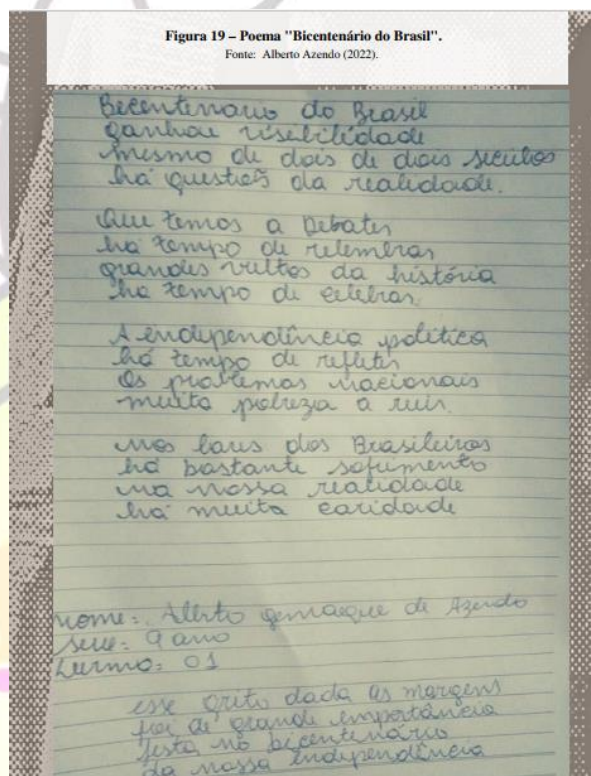 Figura 19 – Poema "Bicentenário do Brasil".
Fonte: Alberto Azendo (2022).
Becentenario do Brasil
ganhou visebilidade
mesmo de dois de dois seculos
há questões da realidade.
Que temos a Debater
há tempo de relembrar
grandes vultos da história
há tempo de celebrar.
A endependência política
há tempo de refleter
Os problemas nacionais
muita pobreza a
nos lares dos Brasileiros
há bastante sofrimento
na nossa realidade
há muita caridade
nome: Alberto de Azendo
serie: 9 ano
turma: 01
esse grito dada as margens
foi de grande emportância
festa no bicentenário
da nossa endependência